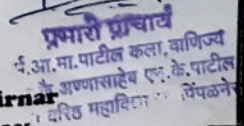 प्रभारी प्राचार्य
आ.मा.पाटील कला,वाणिज्य
अण्णासाहेब एन.के.पाटील
irnar
वरिष्ठ महाविद्या पिंपळनेर